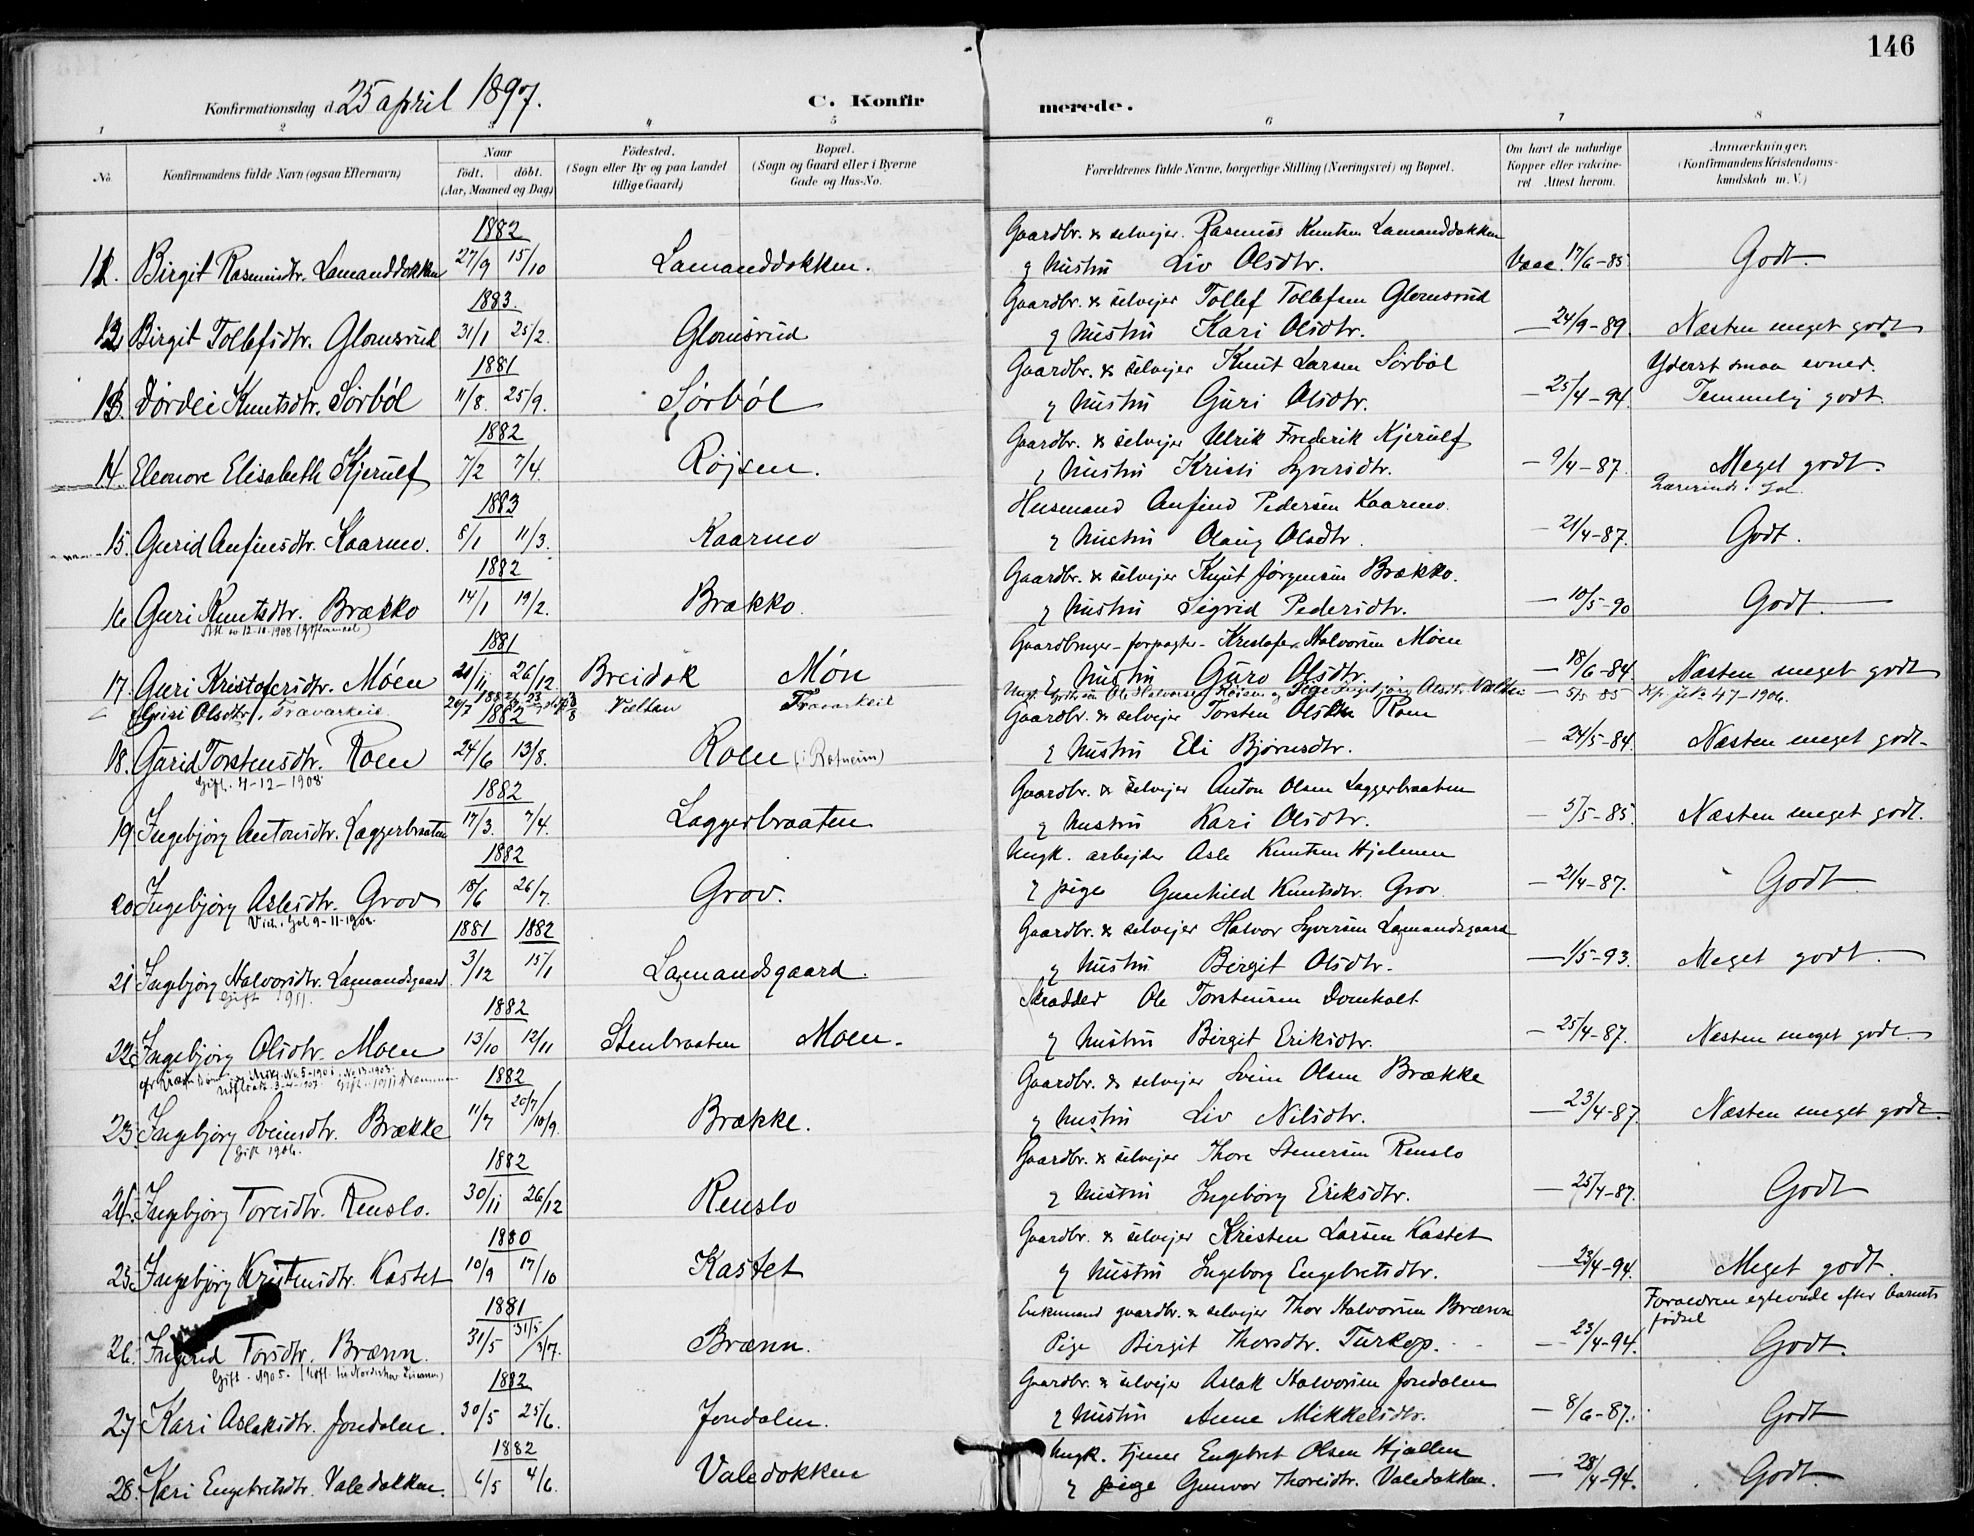 146
Konfirmationsdag d. 25 april 1897.
C. Konfirmerede.
1 2 3 4 5 6 7 8
No.
Konfirmandens fulde Navn (ogsaa Efternavn)
Naar født. døbt. (Aar, Maaned og Dag)
Fødested. (Sogn eller By og paa Landet tillige Gaard)
Bopæl. (Sogn og Gaard eller i Byerne Gade og Hus-No.
Forældrenes fulde Navne, borgerlige Stilling (Næringsvei) og Bopæl.
Om havt de naturlige Kopper eller vakcineret Attest herom.
Anmærkninger, (Konfirmandens Kristendomskundskab m. V.)
1882 Gaardbr. & selvejer. Rasmus Knutsen Lamanddokken
11. Birgit Rasmusdtr. Lamanddokken 27/9 15/10 Lamanddokken. & hustru Liv Olsdtr. Vacc. 17/6-85 Godt.
1883. Gaardbr. & selvejer Tollef Tollefsen Glomsrud
12 Birgit Tollefsdtr. Glomsrud 31/1 25/2. Glomsrud & hustru Kari Olsdtr. — 24/9-89. Næsten meget godt
1881 Gaardbr. & selvejer Knut Larsen Sörböl Yderst smaa evner.
13. Dordei Knutsdtr. Sörböl 11/8. 25/9. Sörböl & hustru Guri Olsdtr. — 25/4-94. Temmelig godt.
1882 Gaardbr. & selvejer Ulrik Frederik Kjerulf
14. Eleonore Elisabeth Kjerulf 7/2 7/4. Röjsen. & hustru Kristi Syversdtr. — 9/4-87. Meget godt.
1883 Husmand Anfind Pedersen Kaarmo. Lærerinde i Gol
15. Gurid Anfinsdtr. Kaarmo. 8/1 11/3. Kaarmo & hustru Olaug Olsdtr. — 21/4-87. Godt.
1882 Gaardbr. & selvejer Knut Jörgensen Brækko.
16 Guri Knutsdtr. Brækko 14/1 19/2. Brækko. & hustru Sigrid Pedersdtr. — 10/5-90 Godt.
1881 Gaardbruger-forpagter- Kristofer Halvorsen Möen
17. Guri Kristofersdtr. Möen 21/11 26/12 Breidok Mön & hustru Guro Olsdtr. — 18/6-84. Næsten meget godt
Guri Olsdtr. Travarkeie Vielten Travarkeie — 5/5 85
1882 Gaardbr. & selvejer Torsten Olsen Roen
18. Gurid Torstensdtr. Roen 24/6 13/8. Roen (i Rotneim) & hustru Eli Björnsdtr. 24/5-84. Næsten meget godt.
Gift. 4-12-1908
1882 Gaardbr. & selvejer Anton Olsen Laggerbraaten
19 Ingebjörg Antonsdtr. Laggerbraaten 17/3. 7/4. Laggerbraaten & hustru Kari Olsdtr. — 5/5-85. Næsten meget godt.
1882 Ungk. arbejder Asle Knutsen Hjelmen
20 Ingebjörg Aslesdtr. Grov 18/6 26/7. Grov. & pige Gunhild Knutsdtr. Grov. — 21/4-87. Godt
Viet i Gol 9-11-1902.
1881 1882 Gaardbr. & selvejer Halvor Syversen Lagmandsgaard
21 Ingebjörg Halvorsdtr. Lagmandsgaard 3/12 15/1 Lagmandsgaard. & hustru Birgit Olsdtr. — 1/5-93. Meget godt.
Gift 1911.
1882 Skrædder Ole Torstensen Domholt
22. Ingebjörg Olsdtr. Moen 13/10 12/11 Stenbraaten Moen. & hustru Birgit Eriksdtr. — 25/4-87. Næsten meget godt.
1882 Gaardbr. & selvejer Svein Olsen Brække
23. Ingebjörg Sveinsdtr. Brække 11/7 20/7 /10/9. Brække. & hustru Liv Nilsdtr. — 23/4-87 Næsten meget godt
Gift 1906.
1882 Gaardbr. & selvejer Thore Stenersen Renslo
24. Ingebjörg Toresdtr. Renslo. 30/11 26/12 Renslo & hustru Ingeborg Eriksdtr. — 25/4-87. Godt
1880 Gaardbr. & selvejer Kristen Larsen Kastet
25. Ingebjörg Kristensdtr. Kastet 10/9 17/10 Kastet & hustru Ingeborg Engebretsdtr. — 23/4-94. Meget godt.
1881 Enkemand gaardbr. & selvejer Thor Halvorsen Brænn Forældrene egteviede efter barnets fødsel
26. Ingerid Torsdtr. Brænn. 31/5 31/5 /3/7. Brænn. Pige Birgit Thorsdtr. Turkop. — 23/4-94. Godt.
Gift. 1905.
1882 Gaardbr. & selvejer Aslak Halvorsen Jondalen
27. Kari Aslaksdtr. Jondalen. 30/5 25/6. Jondalen. & hustru Anne Mikkelsdtr. — 8/6-87. Godt
1882 Ungk. tjener Engebret Olsen Hjallen
28. Kari Engebretsdtr. Valedokken. 6/5 4/6. Valedokken & pige Gunvor Thoresdtr. Valedokken. — 28/4-94. Godt.